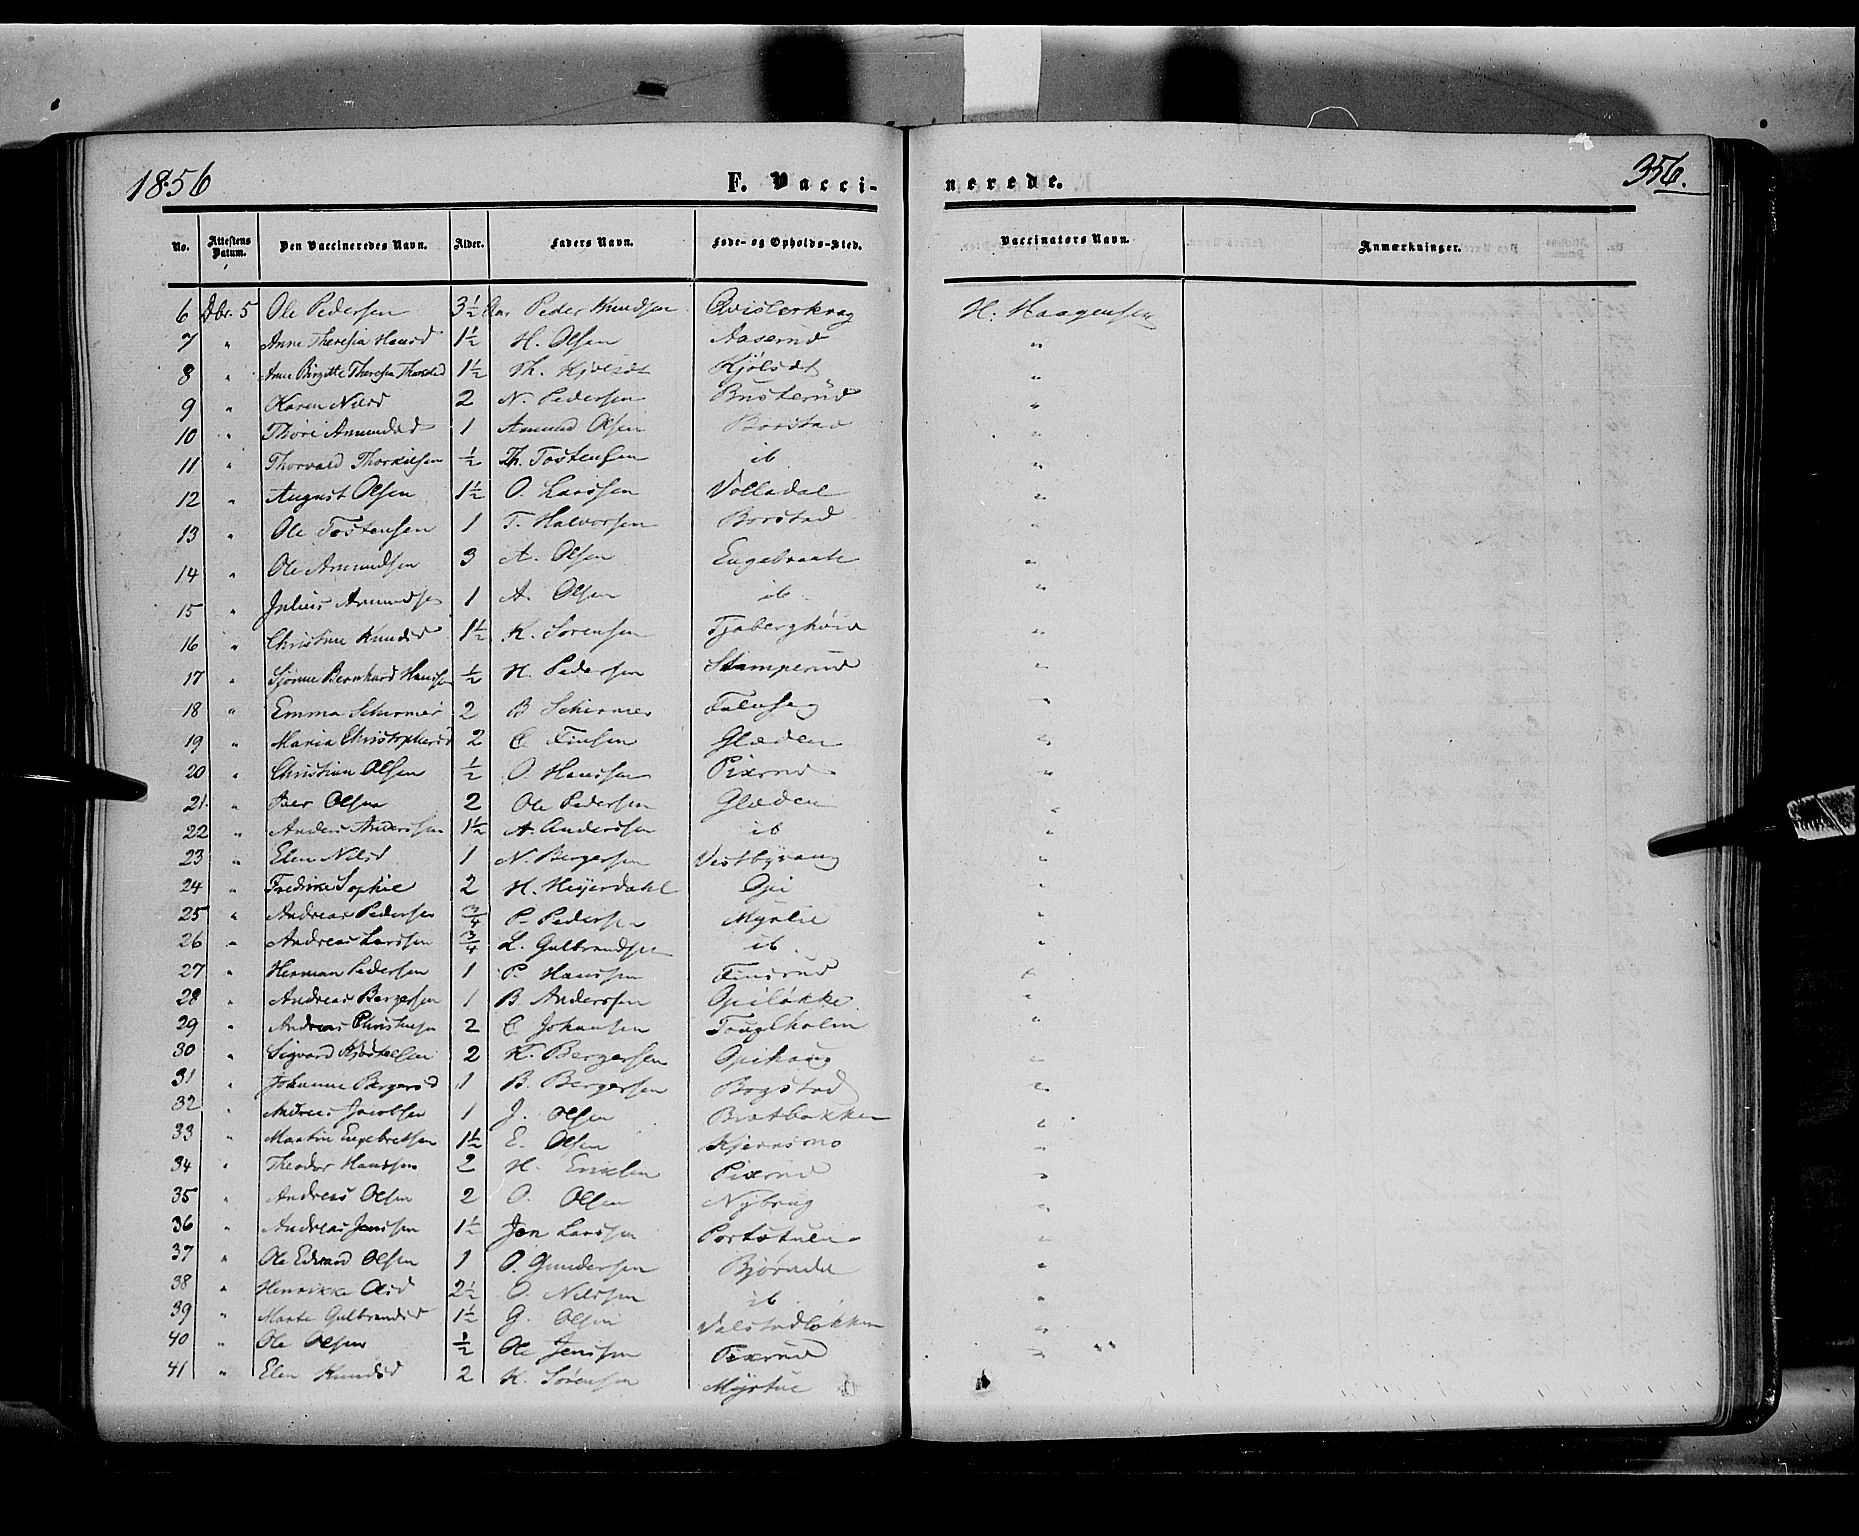 1856 F. Vacci- nerede. 356.
No. Attestens Datum. Den Vaccineredes Navn. Alder. Faders Navn. Føde- og Opholds-Sted. Vaccinators Navn. Anmærkninger.
6 Dbr. 5 Ole Pedersen 3½ Aar Peder Knudsen H. Haagensen
7 " Anne Theresia Hansd 1½ H. Olsen Aaserud "
8 " Anne Birgitte Theresia 1½ Th. Kjølsdt "
9 " Karen Nilsd 2 N. Pedersen Busterud "
10 " Thore Amundsd 1 Amund Olsen Borstad "
11 " Thorvald Thorkilsen ½ Th. Tostensen ib "
12 " August Olsen 1½ O. Larssen Volladal "
13 " Ole Tostensen 1 T. Halvorsen Borstad "
14 " Ole Amundsen 3 A. Olsen Engebraate "
15 " Julius Amundsen 1 A. Olsen ib. "
16 " Christine Knudsd 1½ K. Sørensen "
17 " Bernhard Hanssen ½ H. Pedersen Stamperud "
18 " Emma Schirmer 2 B Schirmer "
19 " Maria Christophersd 2 C Finsen Glæden "
20 " Christian Olsen ½ O. Hanssen Pixrud "
21 " Olsen 2 Ole Pedersen Glæden "
22 " Anders Anderssen 1½ A. Anderssen ib "
23 " Elen Nilsd 1 N. Bergersen Vestbyvang "
24 " Fredrike Sophie 2 H. Heyerdahl Opi "
25 " Andreas Pedersen ¾ P. Pedersen Myrlie "
26 " Andreas Larssen ¾ L. Gulbrandsen ib. "
27 " Herman Pedersen 1 P. Hanssen Finsrud "
28 " Andreas Bergersen 1 B. Anderssen Opiløkke "
29 " Andreas Christensen 2 C. Johansen "
30 " Sigvard 2 K. Bergersen Opihaug "
31 " Johanne Bergersd 1 B. Bergersen Bogstad "
32 " Andreas Jacobsen 1 J. Olsen Bratbakken "
33 " Martin Engebretsen 1½ E. Olsen Kjernsmo "
34 " Theodor Hanssen 2 H. Eriksen Pixrud "
35 " Andreas Olsen 2 O. Olsen Nybrug "
36 " Andreas Jenssen 1½ Jen Larssen "
37 " Ole Edvard Olsen 1 O. Gundersen "
38 " Henrikke Olsd 2½ O. Nilssen ib "
39 " Marte Gulbrandsd 1½ G. Olsen Valstadløkken "
40 " Ole Olsen ½ Ole Jenssen Pixrud "
41 " Elen Knudsd 2 K. Sørensen Myrstue